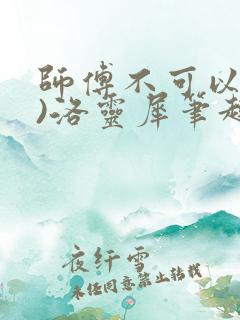 師傅不可以
)洛靈犀筆趣
夜纤雪
未经同意禁止转载